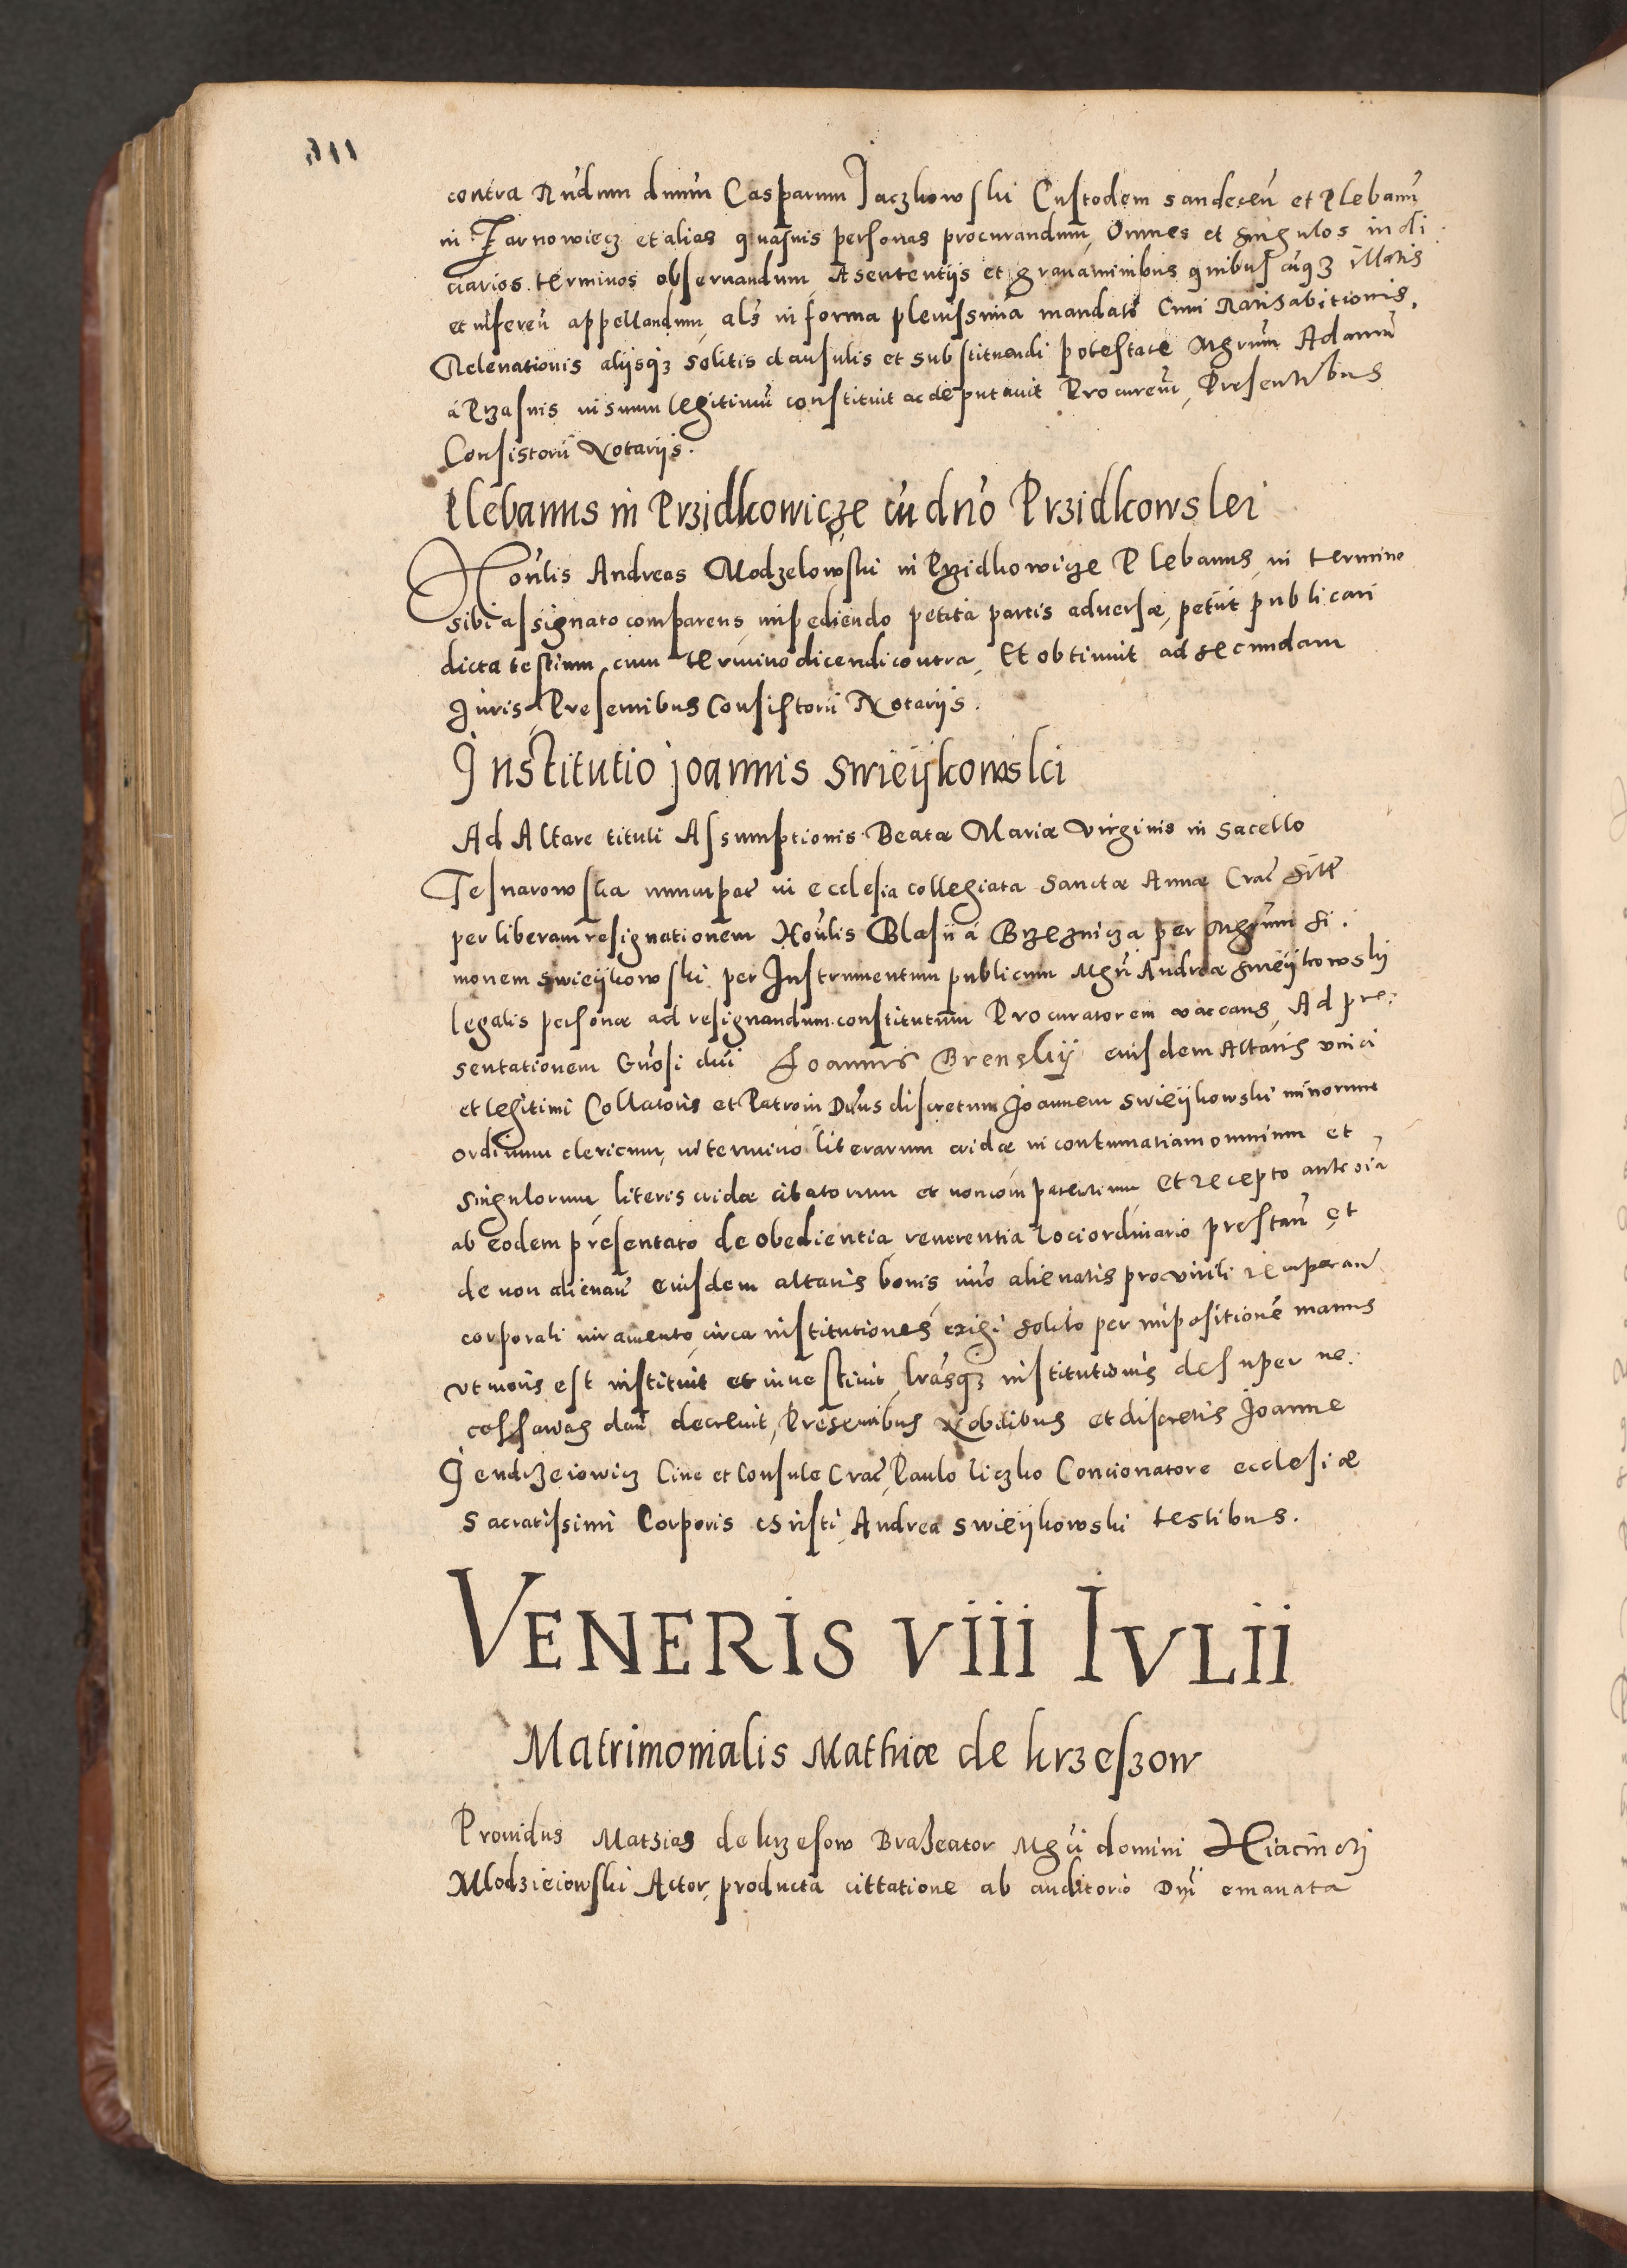 contra Rndum dnum Casparum Jaczkowski Custodem sandeceñ et Plebanũ
in Tarnowiecz et alias quasuis personas procurandum, Omnes et singulos iudi
ciarios terminos obseruandum, A sententijs et grauaminibus quibuscũqʒ illatis
et inferen̄ appellandum, als in forma plenissima mandati Cum Ratihabitionis,
Releuationis alijsqʒ solitis clausulis et substituendi potestate Mgrum Adamũ
á Przasnis in suum legitimũ constituit ac deputauit Procurem̃, Presentibus
Consistorii Notarijs.
Plebanus in Przidkowicze cũ dno Przidkowski
Honlis Andreas Modzelowski in Przidkowicze Plebanus, in termino
sibi assignato comparens, impediendo petita partis aduersæ, petijt publicari
dicta testium, cum termino dicendi contra, Et obtinuit ad secundam
Juris, Presentibus Consistorii Notarijs.
Institutio joannis swieijkowski
Ad Altare tituli Assumptionis Beatæ Mariæ Virginis in sacello
Tesnarowska nuncupat̃ in ecclesia collegiata Sanctæ Annæ Crac̃ sit̃
per liberam resignationem Honlis Blasii á Brzeznicza per Mgrum Si.
monem swieijkowski per Instrumentum publicum Mgri Andreæ swieijkowskj
legalis personæ ad resignandum constitutum Procuratorem vacans, Ad pre:
sentationem Gnosi dni Joannis Brenskij eiusdem Altaris vnici
et legitimi Collatoris et Patroni Dnus discretum Joannem swieijkowski minorum
ordinum clericum, in termino literarum cridæ in contumatiam omnium et
singulorum literis cridæ citatorum et non comparentium Et recepto ante oia
ab eodem presentato de obedientia, reuerentia loci ordinario prestan̄ et
de non alienan̄ eiusdem altaris bonis imo alienatis pro virili recuperan̄
corporali iuramento, circa institutiones exigi solito per impositionẽ manus
vt moris est instituit et inuestiuit, lrasqʒ institutionis desuper ne.
cessarias dan̄ decreuit, Presentibus Nobilibus et discretis Joanne
Jendrzeiowicz Ciue et Consule Crac̃, Paulo liczko Concionatore ecclesiæ
sacratissimi Corporis christi, Andrea swieijkowski testibus.
VENERIS VIII IVLII
Matrimonialis Mathiæ de krzeszow
Prouidus Mathias de krzesow Braxeator Mgci domini Hiacinctj
Mlodzieiowski Actor, producta cittatione ab auditorio Dnj emanata